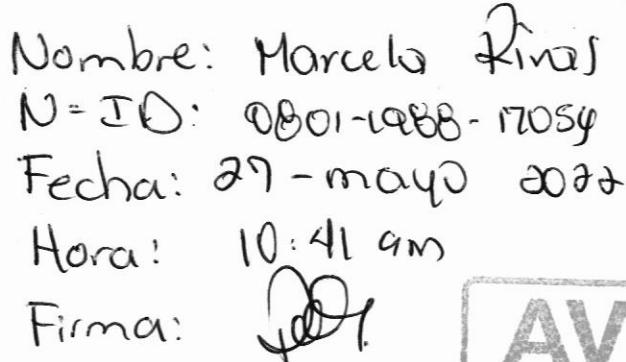 Nombre: Marcela Rivas
N=ID: 0801-1988-17054
Fecha: 27-mayo 2022
Hora: 10:41 am
Firma:
AV